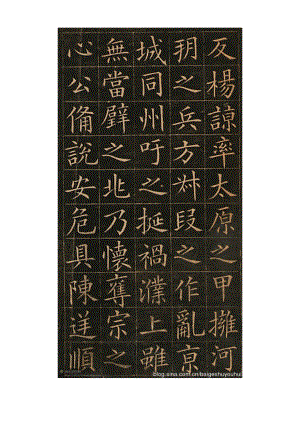 及楊諒率太原之甲擁河
朔之兵方叔段之作亂京
城同州吁之挻禍濮上雖
無當璧之兆乃懷奪宗之
心公俻說安危具陳逆順
blog.sina.com.cn/baigeshuyouhui